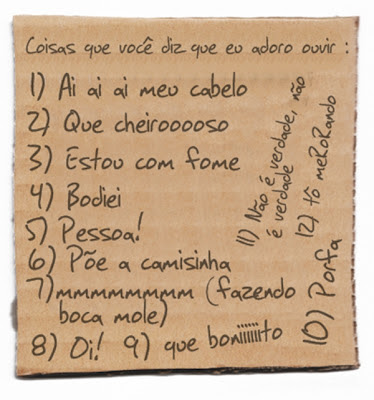 Coisas que você diz que eu adoro ouvir :
1) Ai ai ai meu cabelo
2) Que cheirooooso
3) Estou com fome
4) Bodiei
5) Pessoa!
6) Põe a camisinha
7) mmmmmmmmm (fazendo
boca mole)
8) Oi! 9) que boniiiiiito
10) Porfa
11) Não é verdade, não
é verdade
12) tô meRoRando